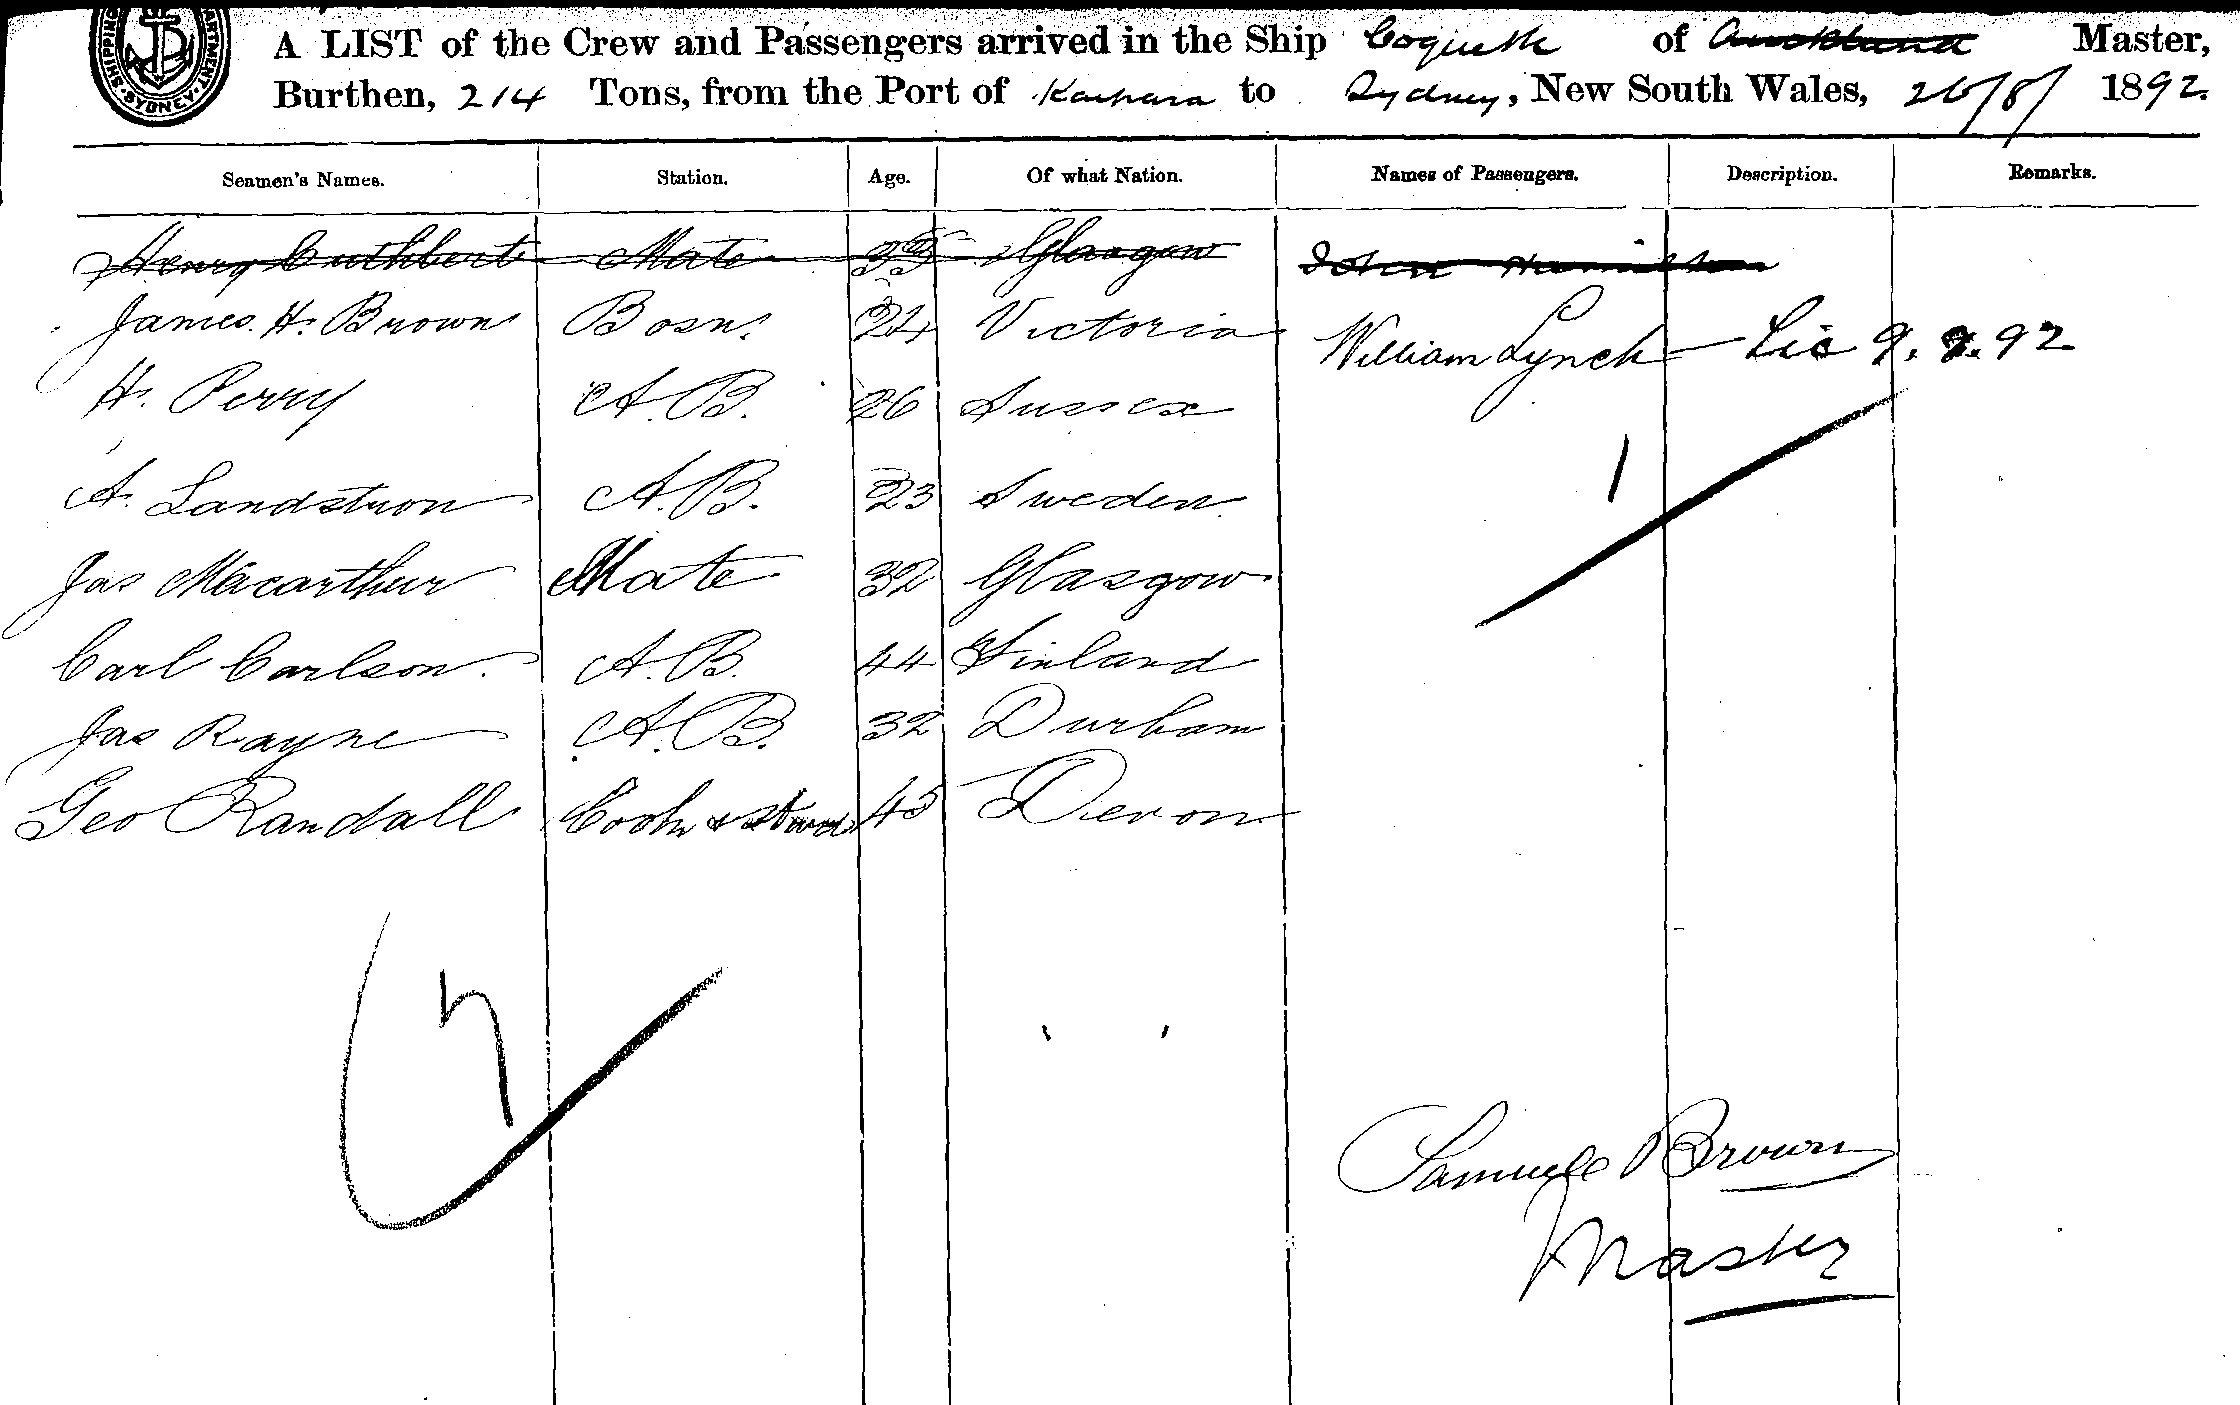 SHIPPING DEPARTMENT SYDNEY
A LIST of the Crew and Passengers arrived in the Ship Coquette of Auckland Master,
Burthen, 214 Tons, from the Port of Kaipara to Sydney, New South Wales, 26/8/ 1892.
Seamen's Names. Station. Age. Of what Nation. Names of Passengers. Description. Remarks.
Henry Cuthbert Mate 33 Glasgow John Hamilton
James. H. Brown Bosn. 24 Victoria William Lynch - Lic 9. 9. 92
H. Perry A.B. 26 Sussex
A. Landstrom A.B. 23 Sweden 1
Jas Macarthur Mate 32 Glasgow
Carl Carlson. A.B. 44 Finland
Jas Rayne A.B. 32 Durham
Geo Randall Cook & Stwd 45 Devon
7
Samuel Brown
Master